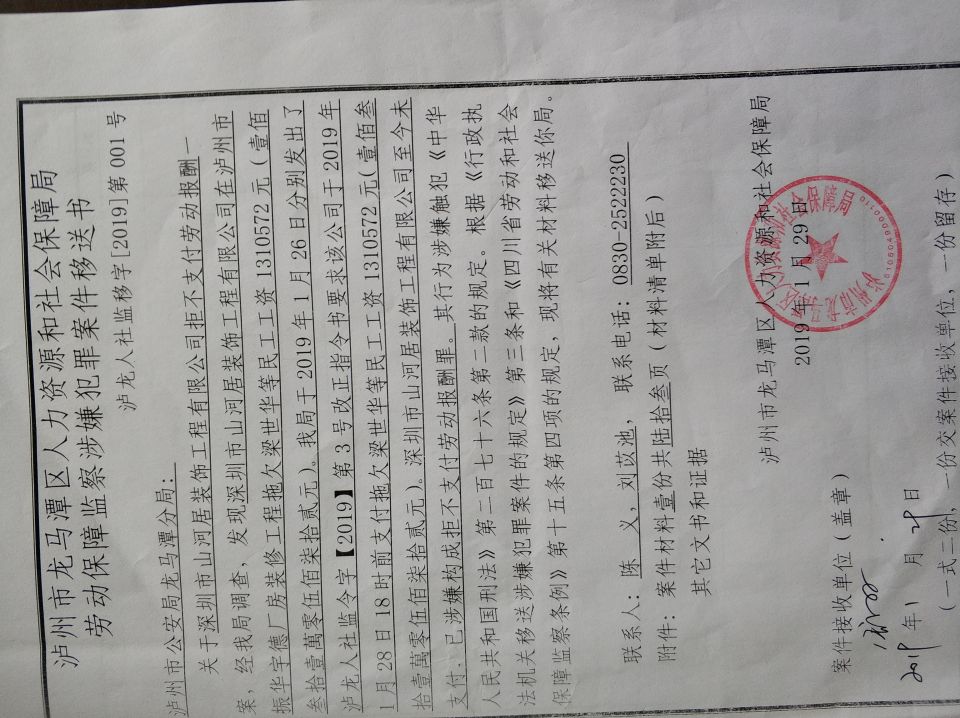 泸州市龙马潭区人力资源和社会保障局
劳动保障监察涉嫌犯罪案件移送书
泸龙人社监移字[2019]第001号
泸州市公安局龙马潭分局:
关于深圳市山河居装饰工程有限公司拒不支付劳动报酬一
案，经我局调查，发现深圳市山河居装饰工程有限公司在泸州市
振华宇德厂房装修工程拖欠梁世华等民工工资1310572元(壹佰
叁拾壹萬零伍佰柒拾贰元)。我局于2019年1月26日分别发出了
泸龙人社监令字【2019】第3号改正指令书要求该公司于2019年
1月28日18时前支付拖欠梁世华等民工工资1310572元(壹佰叁
拾壹萬零伍佰柒拾贰元)，深圳市山河居装饰工程有限公司至今未
支付.已涉嫌构成拒不支付劳动报酬罪。其行为涉嫌触犯《中华
人民共和国刑法》第二百七十六条第二款的规定。根据《行政执
法机关移送涉嫌犯罪案件的规定》第三条和《四川省劳动和社会
保障监察条例》第十五条第四项的规定，现将有关材料移送你局。
联系人：陈 义，刘苡池， 联系电话：0830-2522230
附件：案件材料壹份共陆拾叁页（材料清单附后）
其它文书和证据
泸州市龙马潭区人力资源和社会保障局
2019年1月29日
案件接收单位（盖章）
2019年1月29日
（一式二份，一份交案件接收单位，一份留存）